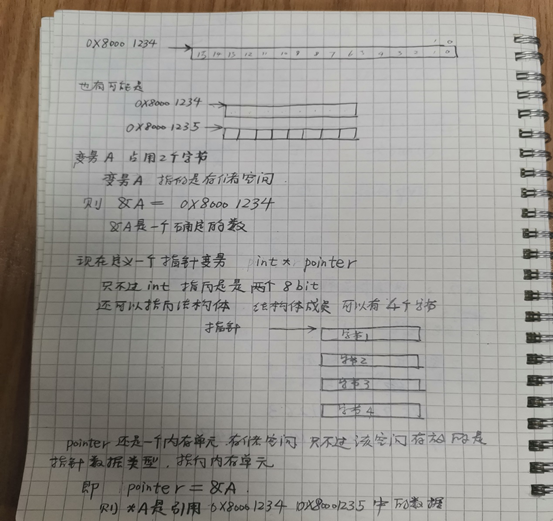 0X8000 1234
15 14 13 12 11 10 9 8 7 6 5 4 3 2 1 0
也有可能是
0X8000 1234
0X8000 1235
变量A 占用2个字节
变量A 指的是存储空间
则 &A = 0X8000 1234
&A是一个确定的数
现在定义一个指针变量 int *, pointer
只不过 int 指向是是两个 8bit
还可以指向结构体 结构体成员 可以有 4个字节
指针
字节1
字节2
字节3
字节4
pointer 还是一个内存单元 存储空间 只不过该空间存放的是
指针数据类型, 指向内存单元
即 pointer = &A.
则 *A是引用 0X8000 1234 0X8000 1235 中的数据